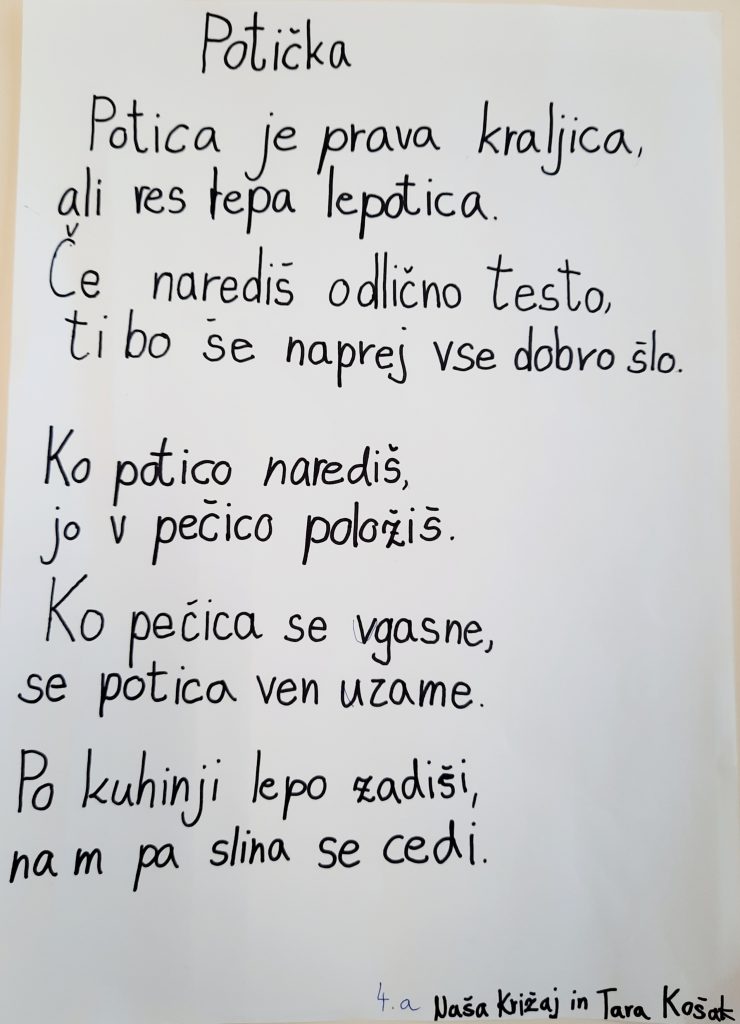 Potička
Potica je prava kraljica,
ali res lepa lepotica.
Če narediš odlično testo,
ti bo še naprej vse dobro šlo.
Ko potico narediš,
jo v pečico položiš.
Ko pečica se vgasne,
se potica ven uzame.
Po kuhinji lepo zadiši,
nam pa slina se cedi.
4.a Naša Križaj in Tara Košak